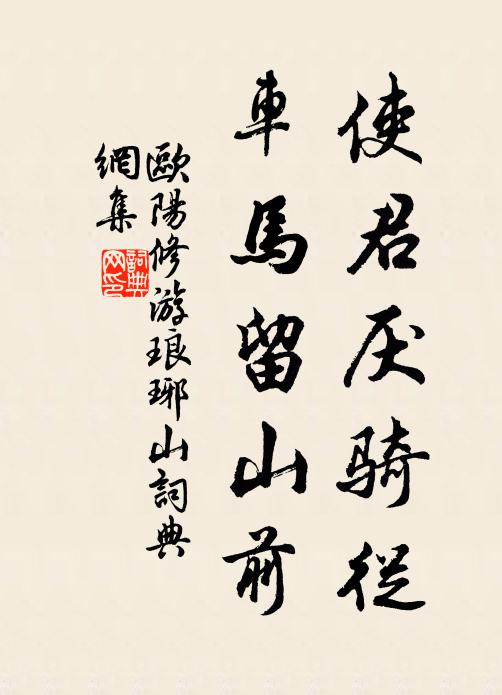 使君厌騎從
車馬留山前
歐陽修游琅琊山詞典
網集
詞典
网印